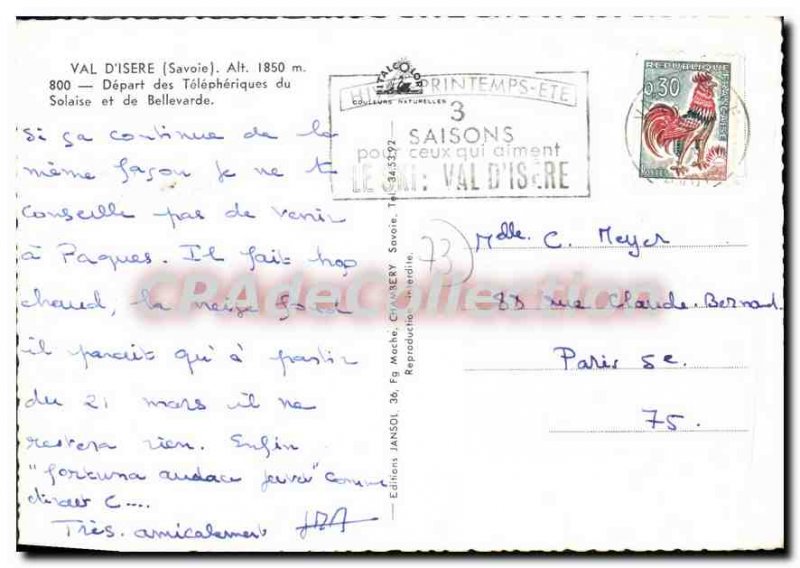 VAL D'ISERE (Savoie). Alt. 1850 m.
800 — Départ des Téléphériques du
Solaise et de Bellevarde.
Si ça continue de la
même façon je ne t
conseille pas de venir
à Paques. Il fait trop
chaud, la neige fond
il parait qu'à partir
du 21 mars il ne
restera rien. Enfin
"fortuna audace juvat" comme
dirait C....
Très amicalement
ITALCOLOR
COULEURS NATURELLES
HIVER PRINTEMPS-ÉTÉ
3
SAISONS
pour ceux qui aiment
LE SKI : VAL D'ISÈRE
— Editions JANSOL 36, Fg Mache, CHAMBERY Savoie. Tel.
Reproduction interdite.
REPUBLIQUE
FRANCAISE
0,30
POSTES
73
Melle. C. Meyer
88 rue Claude-Bernard
Paris 5e.
75.
CPAdeCollection